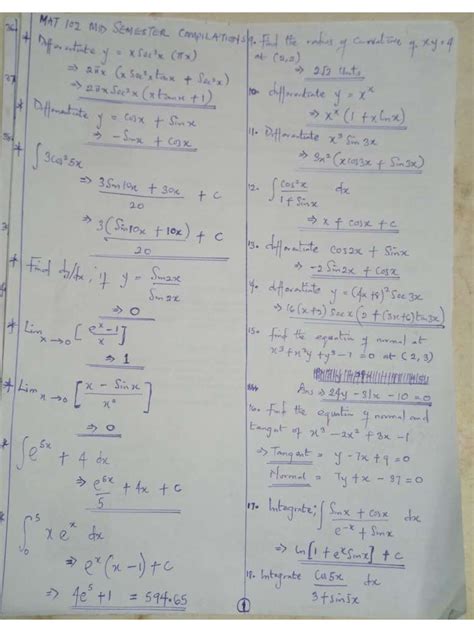 MAT 102 MID SEMESTER COMPILATIONS
* Differentiate y = x Sec²x (πx)
⇒ 2πx (x Sec²x tanx + Sec²x)
⇒ 2πx Sec²x (x tanx + 1)
* Differentiate y = Cosx + Sinx
⇒ -Sinx + Cosx
∫ 3Cos²5x
⇒ 3Sin10x + 30x / 20 + C
⇒ 3(Sin10x + 10x) / 20 + C
* Find dy/dx, if y = Sin2x / Sin2x
⇒ 0
* Lim x→0 [e^x - 1 / x]
⇒ 1
* Lim x→0 [x - Sinx / x²]
⇒ 0
* ∫ e^5x + 4 dx
⇒ e^5x / 5 + 4x + C
* ∫₀⁵ x e^x dx
⇒ e^x (x - 1) + C
⇒ 4e⁵ + 1 = 594.65
9. Find the radius of curvature of xy = 4
at (2,2)
⇒ 2√2 Units
10. differentiate y = x^x
⇒ x^x (1 + x lnx)
11. Differentiate x³ Sin3x
⇒ 3x² (x Cos3x + Sin3x)
12. ∫ Cos²x / 1 + Sinx dx
⇒ x + Cosx + C
13. differentiate Cos2x + Sinx
⇒ -2Sin2x + Cosx
differentiate y = (4x+8)² Sec3x
15. find the equation of normal at
x³ + x²y + y³ - 1 = 0 at (2, 3)
Ans ⇒ 24y - 31x - 10 = 0
16. Find the equation of normal and
tangent of x³ - 2x² + 3x - 1
⇒ Tangent = y - 7x + 9 = 0
Normal = 7y + x - 37 = 0
17. Integrate; ∫ Sinx + Cosx / e^-x + Sinx dx
⇒ ln[1 + e^x Sinx] + C
18. Integrate Cos5x / 3 + Sin5x dx
1